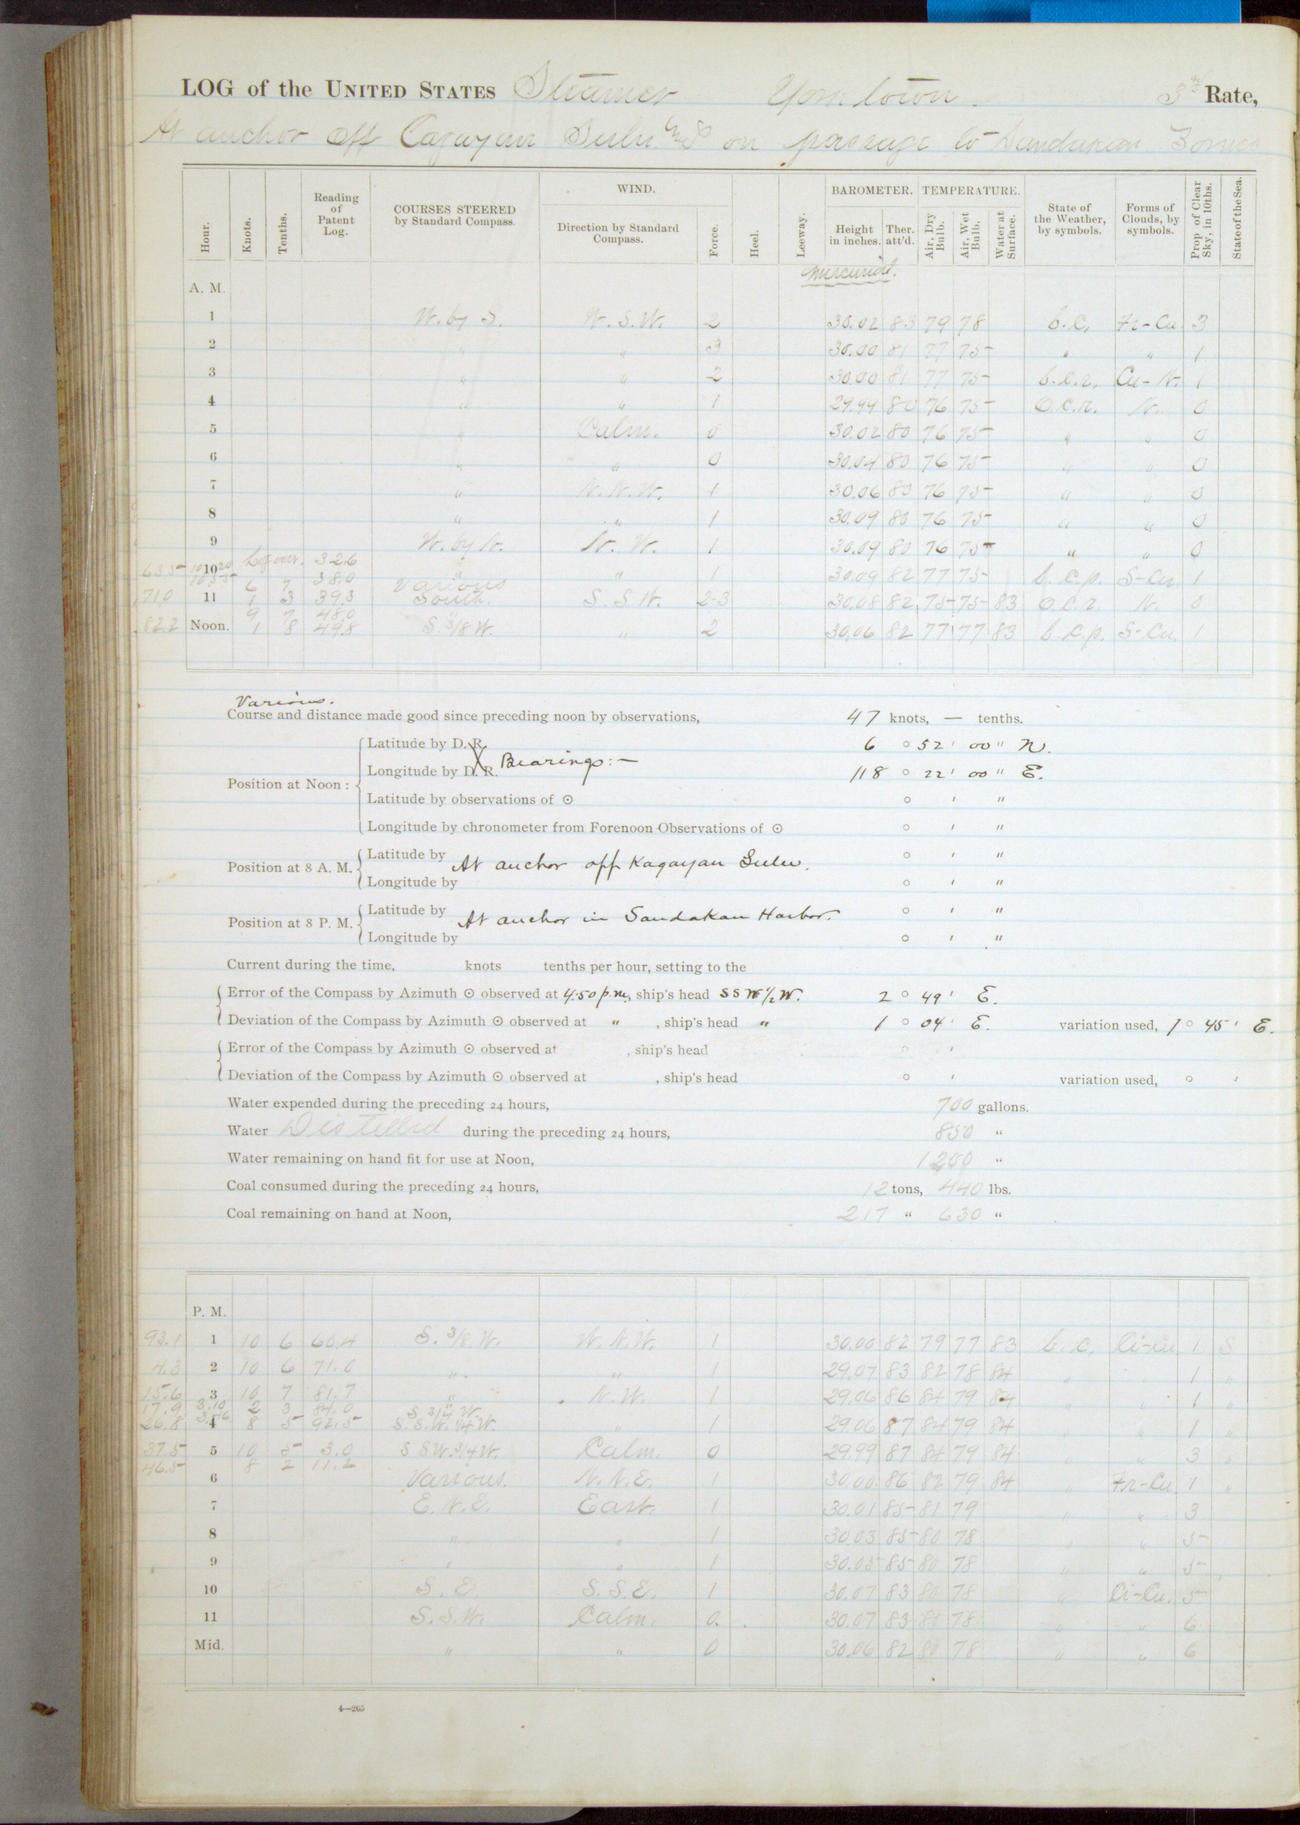 LOG of the UNITED STATES Steamer Yorktown. 3rd Rate,
At anchor off Cagayan Sulu and on passage to Sandakan Borneo
Hour. Knots. Tenths. Reading of Patent Log. COURSES STEERED by Standard Compass. WIND. Direction by Standard Compass. Force. Heel. Leeway. BAROMETER. Height in inches. Ther. att'd. TEMPERATURE. Air, Dry Bulb. Air, Wet Bulb. Water at Surface. State of the Weather, by symbols. Forms of Clouds, by symbols. Prop. of Clear Sky, in 10ths. State of the Sea.
mercurial.
A. M.
1 W. by S. W. S. W. 2 30.02 83 79 78 b.c. Fr-Cu. 3
2 " " 3 30.00 81 77 75 " " 1
3 " " 2 30.00 81 77 75 b.c.r. Cu-N. 1
4 " " 1 29.99 80 76 75 o.c.r. N. 0
5 " Calm. 0 30.02 80 76 75 " " 0
6 " " 0 30.04 80 76 75 " " 0
7 " W. N. W. 1 30.06 80 76 75 " " 0
8 " " 1 30.09 80 76 75 " " 0
9 W. by N. N. W. 1 30.09 80 76 75 " " 0
63.5 10 32.6 " " 1 30.09 82 77 75 b.c.p. S-Cu. 1
6 7 38.0 Various
71.0 11 1 3 39.3 South. S. S. W. 2-3 30.08 82 75 75 83 o.c.r. N. 0
9 7 48.0
82.2 Noon. 1 8 49.8 S. 3/8 W. " 2 30.06 82 77 77 83 b.c.p. S-Cu. 1
Various.
Course and distance made good since preceding noon by observations, 47 knots, — tenths.
Latitude by D. R. 6 ° 52 ' 00 " N.
Position at Noon : Longitude by D. R. Bearings:— 118 ° 22 ' 00 " E.
Latitude by observations of ⊙ ° ' "
Longitude by chronometer from Forenoon Observations of ⊙ ° ' "
Position at 8 A. M. Latitude by At anchor off Kagayan Sulu. ° ' "
Longitude by ° ' "
Position at 8 P. M. Latitude by At anchor in Sandakan Harbor. ° ' "
Longitude by ° ' "
Current during the time, knots tenths per hour, setting to the
Error of the Compass by Azimuth ⊙ observed at 4:50 p.m., ship's head SSW 1/2 W. 2 ° 49 ' E.
Deviation of the Compass by Azimuth ⊙ observed at " , ship's head " 1 ° 04 ' E. variation used, 1 ° 45 ' E.
Error of the Compass by Azimuth ⊙ observed at , ship's head ° '
Deviation of the Compass by Azimuth ⊙ observed at , ship's head ° ' variation used, ° '
Water expended during the preceding 24 hours, 700 gallons.
Water Distilled during the preceding 24 hours, 850 "
Water remaining on hand fit for use at Noon, 1200 "
Coal consumed during the preceding 24 hours, 12 tons, 440 lbs.
Coal remaining on hand at Noon, 217 " 630 "
P. M.
93.1 1 10 6 60.4 S. 3/8 W. W. N. W. 1 30.00 82 79 77 83 b.c. Ci-Cu. 1 S
4.3 2 10 6 71.0 " " 1 29.07 83 82 78 84 " " 1 "
15.6 3 10 7 81.7 " N. W. 1 29.06 86 84 79 84 " " 1 "
17.9 3.10 2 3 84.0 S. 3/4 W.
26.8 4 8 5 92.5 S. S. W. 1/4 W. " 1 29.06 87 84 79 84 " " 1 "
37.5 5 10 5 3.0 S S W. 3/4 W. Calm. 0 29.99 87 84 79 84 " " 3 "
46.5 8 2 11.2
6 Various. N. N. E. 1 30.00 86 82 79 84 " Fr-Cu. 1 "
7 E. N. E. East. 1 30.01 85 81 79 " " 3
8 " " 1 30.03 85 80 78 " " 5
9 " " 1 30.05 85 80 78 " " 5
10 S. E. S. S. E. 1 30.07 83 80 78 " Ci-Cu. 5
11 S. S. W. Calm. 0. 30.07 83 80 78 " " 6
Mid. " " 0 30.06 82 80 78 " " 6
4—265